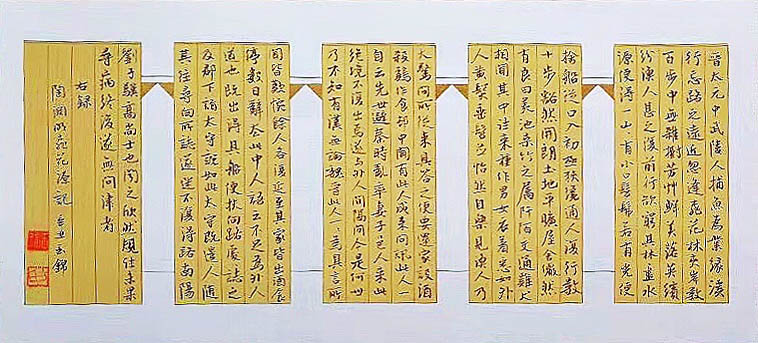 晋太元中武陵人捕魚為業緣溪
行忘路之遠近忽逢桃花林夾岸數
百步中無雜樹芳草鮮美落英繽
紛漁人甚之復前行欲窮其林盡水
源便得一山有小口髣髴若有光便
捨船從口入初極狹通人復行數
十步豁然開朗土地平曠屋舍儼然
有良田美池桑竹之屬阡陌交通雞犬
相聞其中往來種作男女衣着悉如外
人黃髮垂髫怡然自樂見漁人乃
大驚問所從来具答之便要還家設酒
殺鷄作食邨中聞有此人咸來問訊此人一
自云先世避秦時亂率妻子邑人來此
絕境不復出焉遂與外人間隔問今是何世
乃不知有漢無論魏晉此人一一為具言所
聞皆歎惋餘人各復延至其家皆出酒食
停數日辭去此中人語云不足為外人
道也既出得其船便扶向路處處誌之
及郡下詣太守說如此太守既遣人隨
其往尋向所誌遂迷不復得路南陽
劉子驥高尚士也聞之欣然規往未果
尋病終後遂無問津者
右録
陶淵明桃花源記 辛丑玉錦